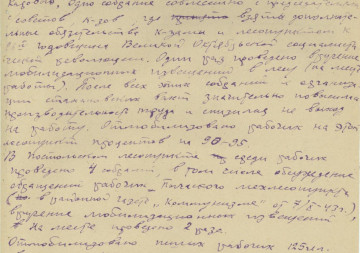 Кадовно, Одно собрание совместно с председателями
с советов к-зов где взяты дополнительные
обязательства к-замы и лесопунктом к
годовщине Великой Октябрьской социалисти-
ческой революции. Один раз проведено вручение
мобилизационных извещений в лесу (на месте
работы). После всех этих собраний и
значительно повысилась
производительность труда и снизился не выход
на работу. Отмобилизовано рабочих на
лесопункт процентов на 90-95.
В лесопункте среди рабочих
проведено 4 собрания, в том числе обсуждение
обращения рабочих мехлесопункта
(в районной газете „Коммунизма" от 7/X-47г.)
вручение мобилизационных извещений
на месте проведено 2 раза.
Отмобилизовано пеших рабочих 125 чел.